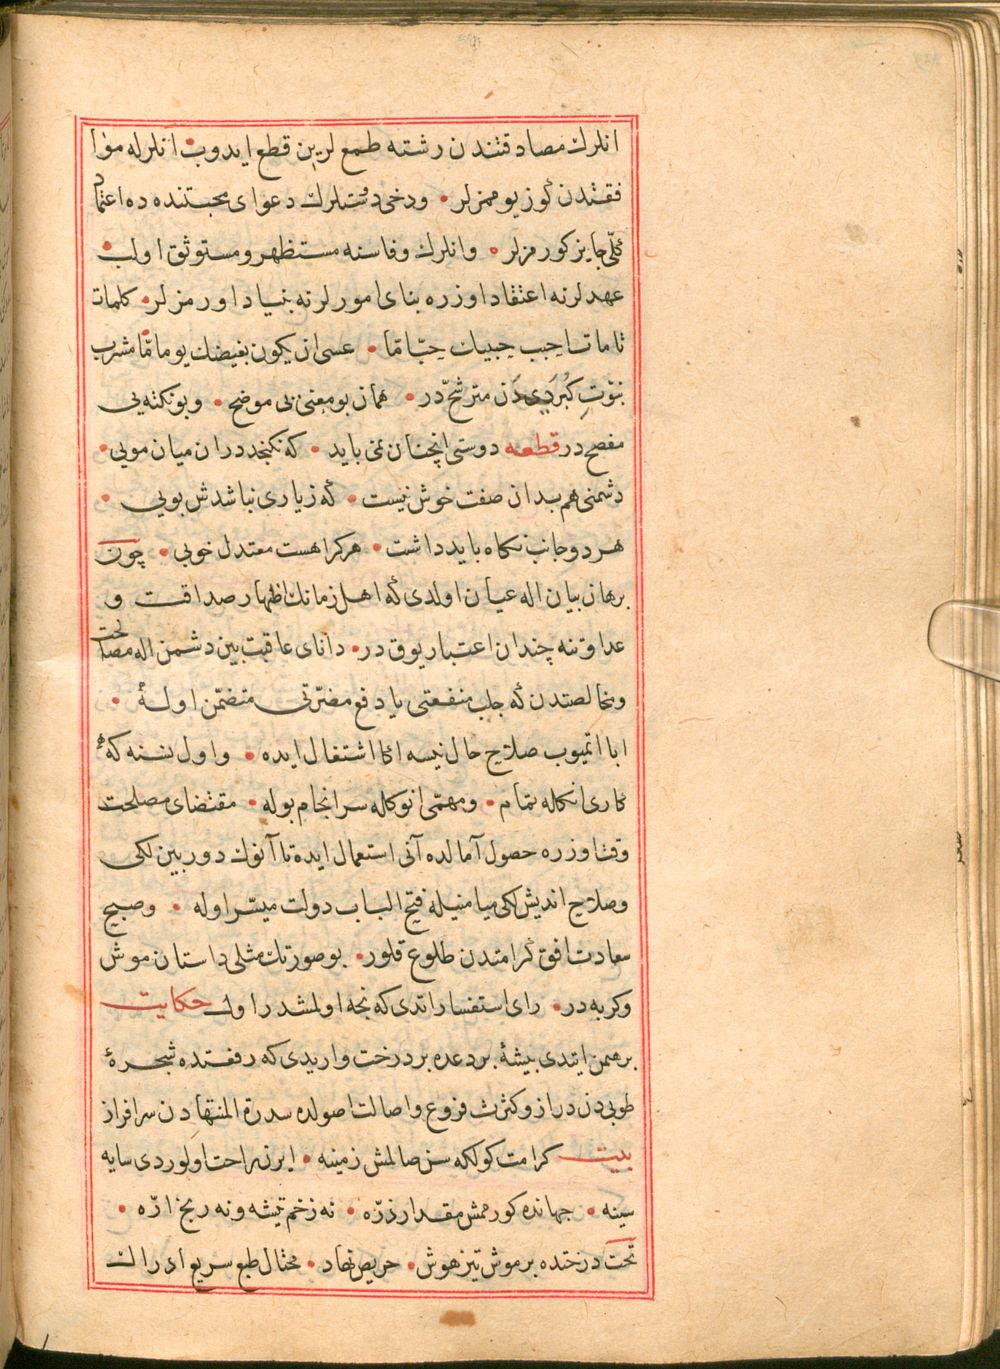 انلرك مصادقتندن رشته طمع لرین قطع ایدوب انلرله موا
فقتدن كوز یومزلر • ودخی دوستلرك دعوای محبتنده ده اعتما
كلّی جایز كورمزلر • وانلرك وفاسنه مستظهر ومستوثق اولب
عهدلرنه اعتقاد اوزره بنای امورلرنه بنیاد اورمزلر • كلمات
تامات احبب حبیبك حبّا مّا • عسی ان یكون بغیضك یوما مّا مشرب
نبوّت كبرىدن مترشّح در • همان بو معنی یی موضح • وبو نكته یی
مفصح در قطعه دوستی انچنان نمی باید • كه نكنجد دران میان مویی •
دشمنی هم بدان صفت خوش نیست • كه زیاری نباشدش بویی •
هر دو جانب نكاه باید داشت • هر كرا هست معتدل خویی • چون
برهان بیان اله عیان اولدی كه اهل زمانك اظهار صداقت و
عداوتنه چندان اعتبار یوق در • دانای عاقبت بین دشمن اله مصالحت
ومخالصتدن كه جلب منفعتی یا دفع مضرّتی متضمّن اوله •
ابا اتمیوب صلاح حال نیسه اكا اشتغال ایده • واول نسنه كه
كاری انكله تمام • ومهمّی انوكله سرانجام بوله • مقتضای مصلحت
وقت اوزره حصول آمالده آنی استعمال ایده تا آنوك دوربین لكی
وصلاح اندیش لكی میامنیله فتح الباب دولت میسّر اوله • وصبح
سعادت افق كرامتدن طلوع قلور • بو صورتك مثلی داستان موش
وكربه در • رای استفسار اتدی كه نجه اولمشدر اول حكایت
برهمن ایتدی بیشهٔ بردعده بر درخت واریدی كه رفعتده شجرهٔ
طوبی دن دراز وكثرت فروع واصالت اصولده سدرة المنتهادن سرافراز
بیت كرامت كولكه سن صالمش زمینه • ایرن راحت اولوردی سایه
سینه • جهانده كورممش مقدار ذرّه • نه زخم تیشه ونه رنج ارّه •
تحت درختده بر موش تیز هوش • حریص نهاد • محتال طبع سریع ادراك